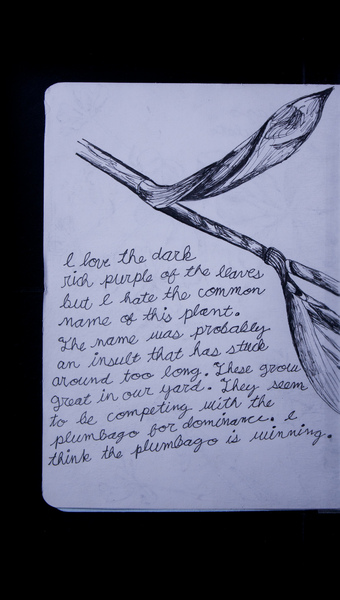 I love the dark
rich purple of the leaves
but I hate the common
name of this plant.
The name was probably
an insult that has stuck
around too long. These grow
great in our yard. They seem
to be competing with the
plumbago for dominance. I
think the plumbago is winning.